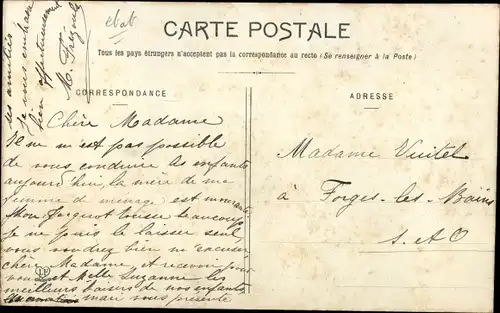 CARTE POSTALE
Tous les pays étrangers n'acceptent pas la correspondance au recto (Se renseigner à la Poste)
CORRESPONDANCE
Chère Madame
Il ne m'est pas possible
de vous conduire les enfants
aujourd'hui, la mère de ma
femme de ménage est mourante
Mon tousse beaucoup,
je ne puis le laisser seul,
vous voudrez bien m'excuser
chère Madame et recevoir pour
vous et Melle Suzanne les
meilleurs baisers de nos enfants
mari vous présente
ses amitiés
je vous embrasse
bien affectueusement
M.
ADRESSE
Madame Vuitel
à Forges-les-Bains
S.-et-O